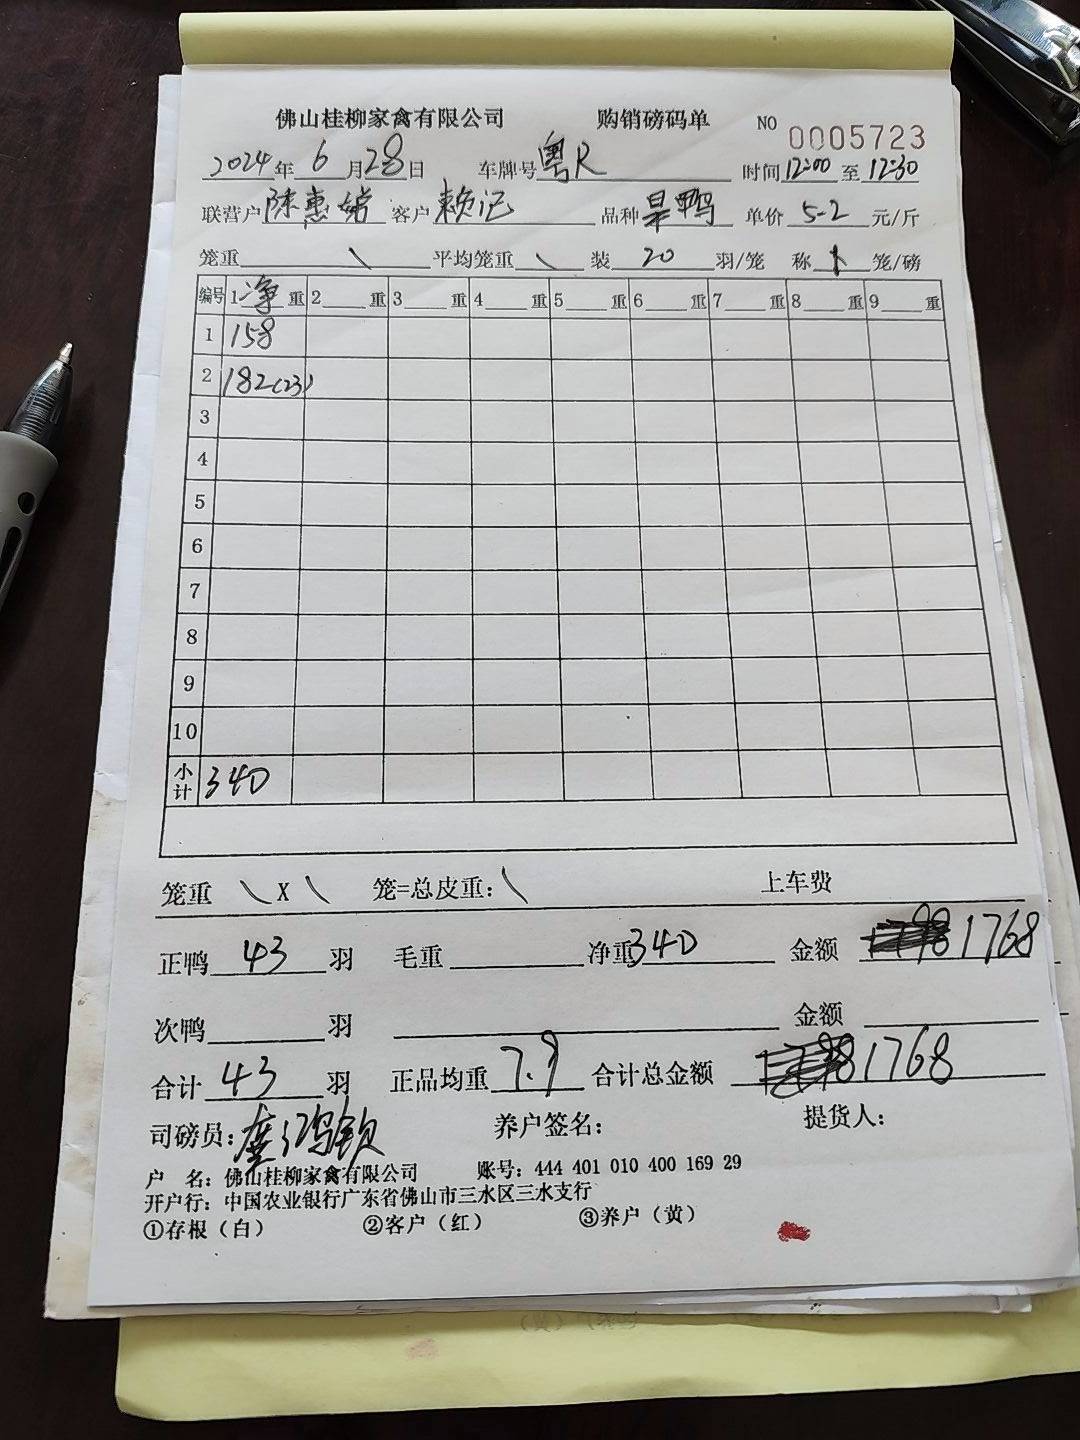 佛山桂柳家禽有限公司 购销磅码单 NO 0005723
2024年 6 月 28 日 车牌号 粤R 时间 12:00 至 12:30
联营户 陈惠婵 客户 赖记 品种 旱鸭 单价 5-2 元/斤
笼重 \ 平均笼重 \ 装 20 羽/笼 称 笼/磅
编号 1 净 重 2 重 3 重 4 重 5 重 6 重 7 重 8 重 9 重
1 158
2 182(23)
3
4
5
6
7
8
9
10
小计 340
笼重 \ X \ 笼=总皮重: \ 上车费
正鸭 43 羽 毛重 净重 340 金额 1768
次鸭 羽 金额
合计 43 羽 正品均重 7.9 合计总金额 1768
司磅员: 养户签名: 提货人:
户 名: 佛山桂柳家禽有限公司 账号: 444 401 010 400 169 29
开户行: 中国农业银行广东省佛山市三水区三水支行
①存根（白） ②客户（红） ③养户（黄）